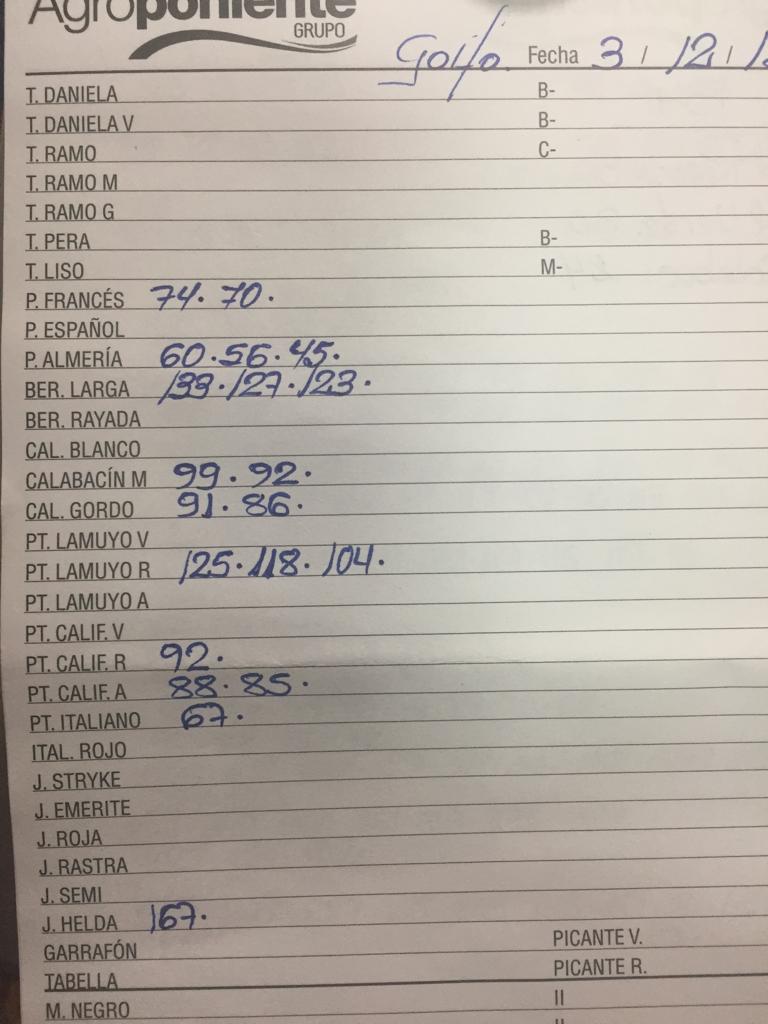 Agroponiente
GRUPO
Golfo Fecha 3 / 12 /
T. DANIELA B-
T. DANIELA V B-
T. RAMO C-
T. RAMO M
T. RAMO G
T. PERA B-
T. LISO M-
P. FRANCÉS 74. 70.
P. ESPAÑOL
P. ALMERÍA 60. 56. 45.
BER. LARGA 133. 127. 123.
BER. RAYADA
CAL. BLANCO
CALABACÍN M 99. 92.
CAL. GORDO 91. 86.
PT. LAMUYO V
PT. LAMUYO R 125. 118. 104.
PT. LAMUYO A
PT. CALIF. V
PT. CALIF. R 92.
PT. CALIF. A 88. 85.
PT. ITALIANO 67.
ITAL. ROJO
J. STRYKE
J. EMERITE
J. ROJA
J. RASTRA
J. SEMI
J. HELDA 167.
GARRAFÓN PICANTE V.
TABELLA PICANTE R.
M. NEGRO II